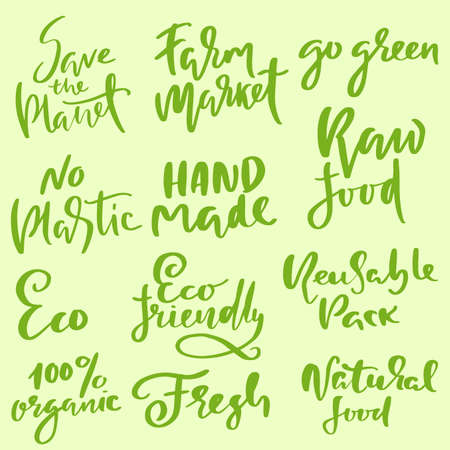 Save
the
Planet
Farm
Market
go green
Raw
food
No
Plastic
HAND
Made
Eco
Eco
friendly
Reusable
Pack
100%
organic
Fresh
Natural
food